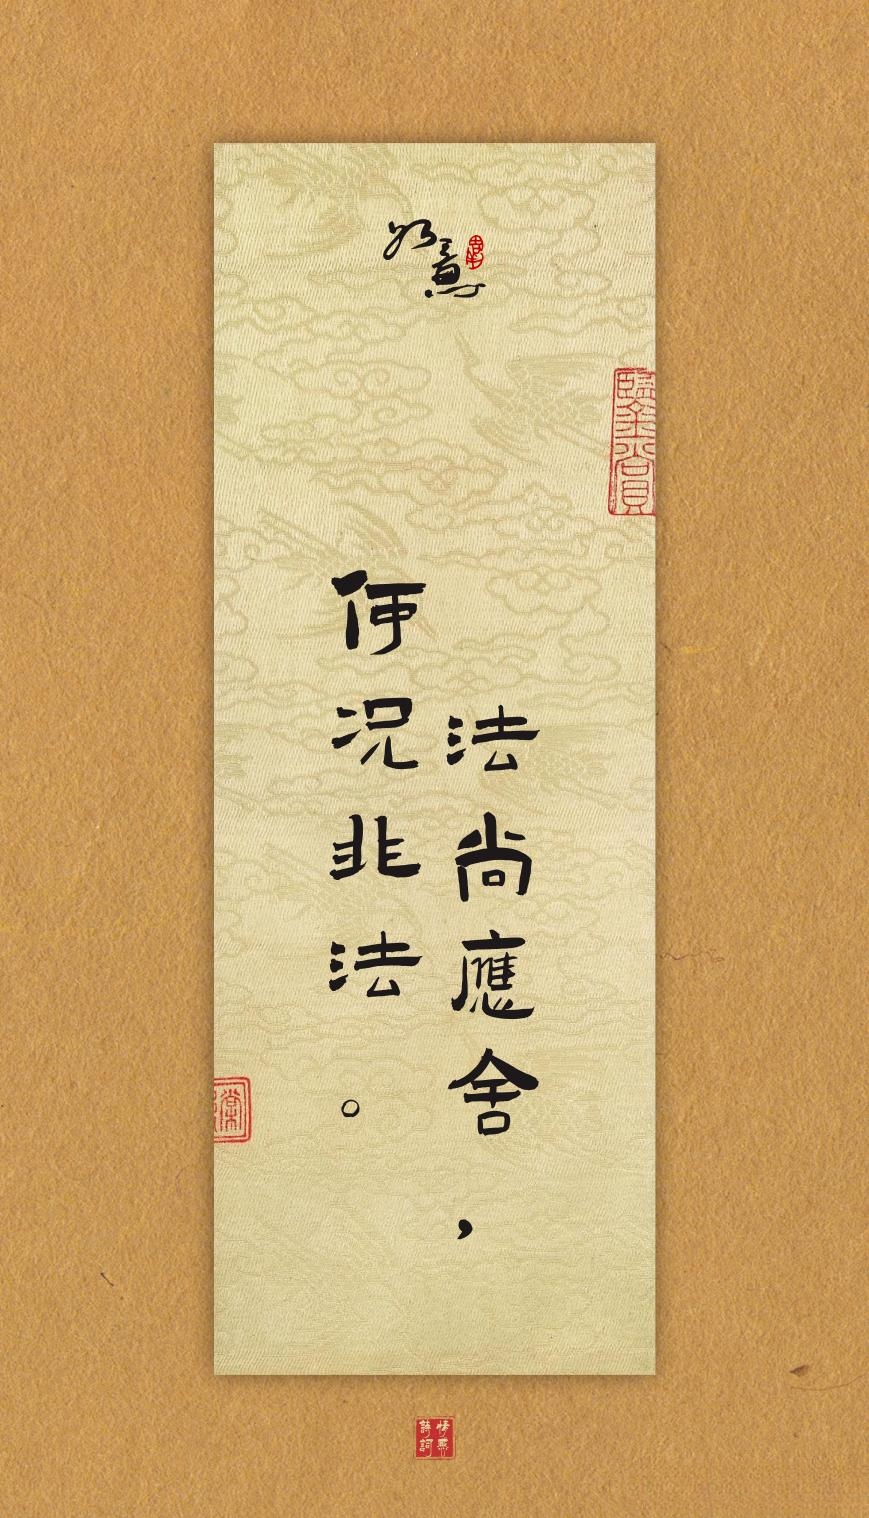 如意
法尚應舍，
何況非法。